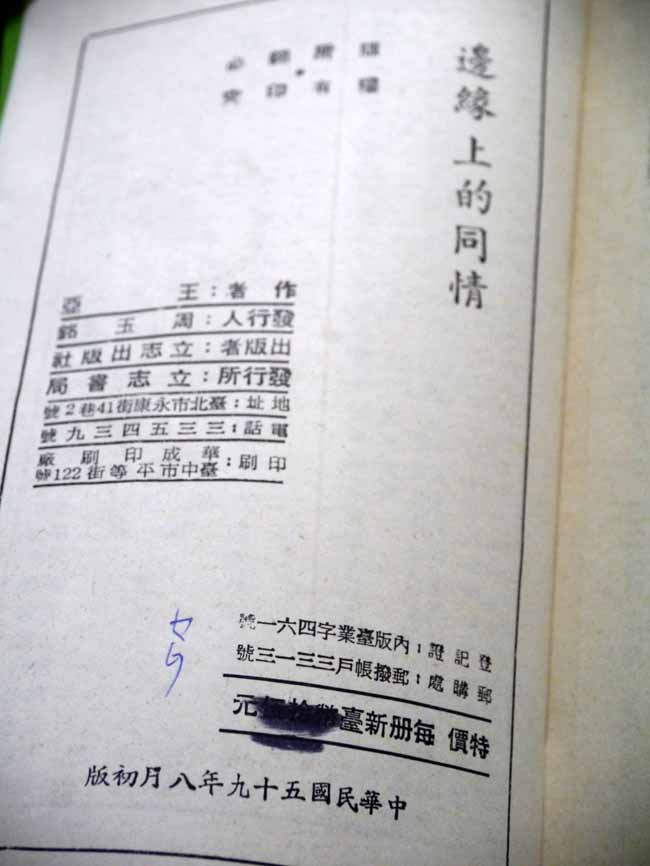 邊緣上的同情
版權所有
翻印必究
作者：王亞
發行人：周玉銘
出版者：立志出版社
發行所：立志書局
地址：臺北市永康街41巷2號
電話：三三五四三九號
印刷：華成印刷廠
臺中市平等街122號
登記證：內版臺業字四六一號
郵購處：郵撥帳戶三三一三號
特價 每册新臺幣拾伍元
中華民國五十九年八月初版